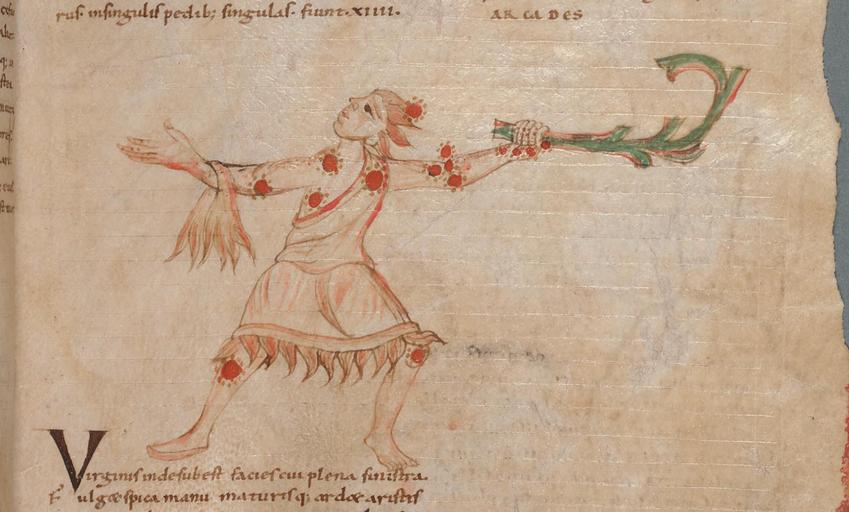 rus. in singulis pedib; singulas. fiunt. xiiii.
ARCADES
Virginis inde subest facies cui plena sinistra.
Fulgæ spica manu maturisq; ardæ aristis